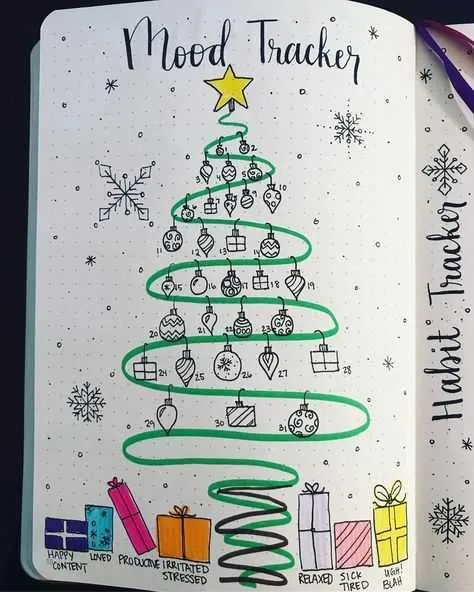 Mood Tracker
1 2
3 4 5
6 7 8 9 10
11 12 13 14
15 16 17 18 19
20 21 22 23
24 25 26 27 28
29 30 31
HAPPY CONTENT
LOVED
PRODUCTIVE
IRRITATED STRESSED
RELAXED
SICK TIRED
UGH! BLAH
Habit Tracker